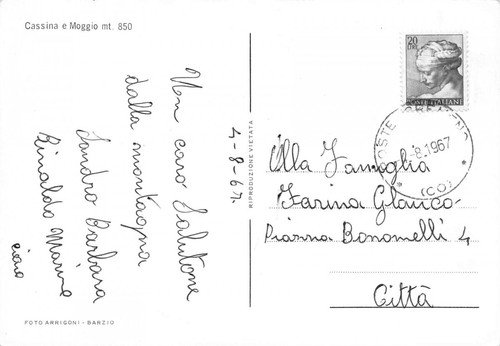 Cassina e Moggio mt. 850
Un caro Salutone
dalla montagna
Sandro Barbara
Rinaldo Marina
ciao
FOTO ARRIGONI - BARZIO
4-8-67.
RIPRODUZIONE VIETATA
20
LIRE
POSTE ITALIANE
POSTE
-8.1967
(CO)
Alla Famiglia
Farina Glauco
Piazza Bonomelli 4
Città